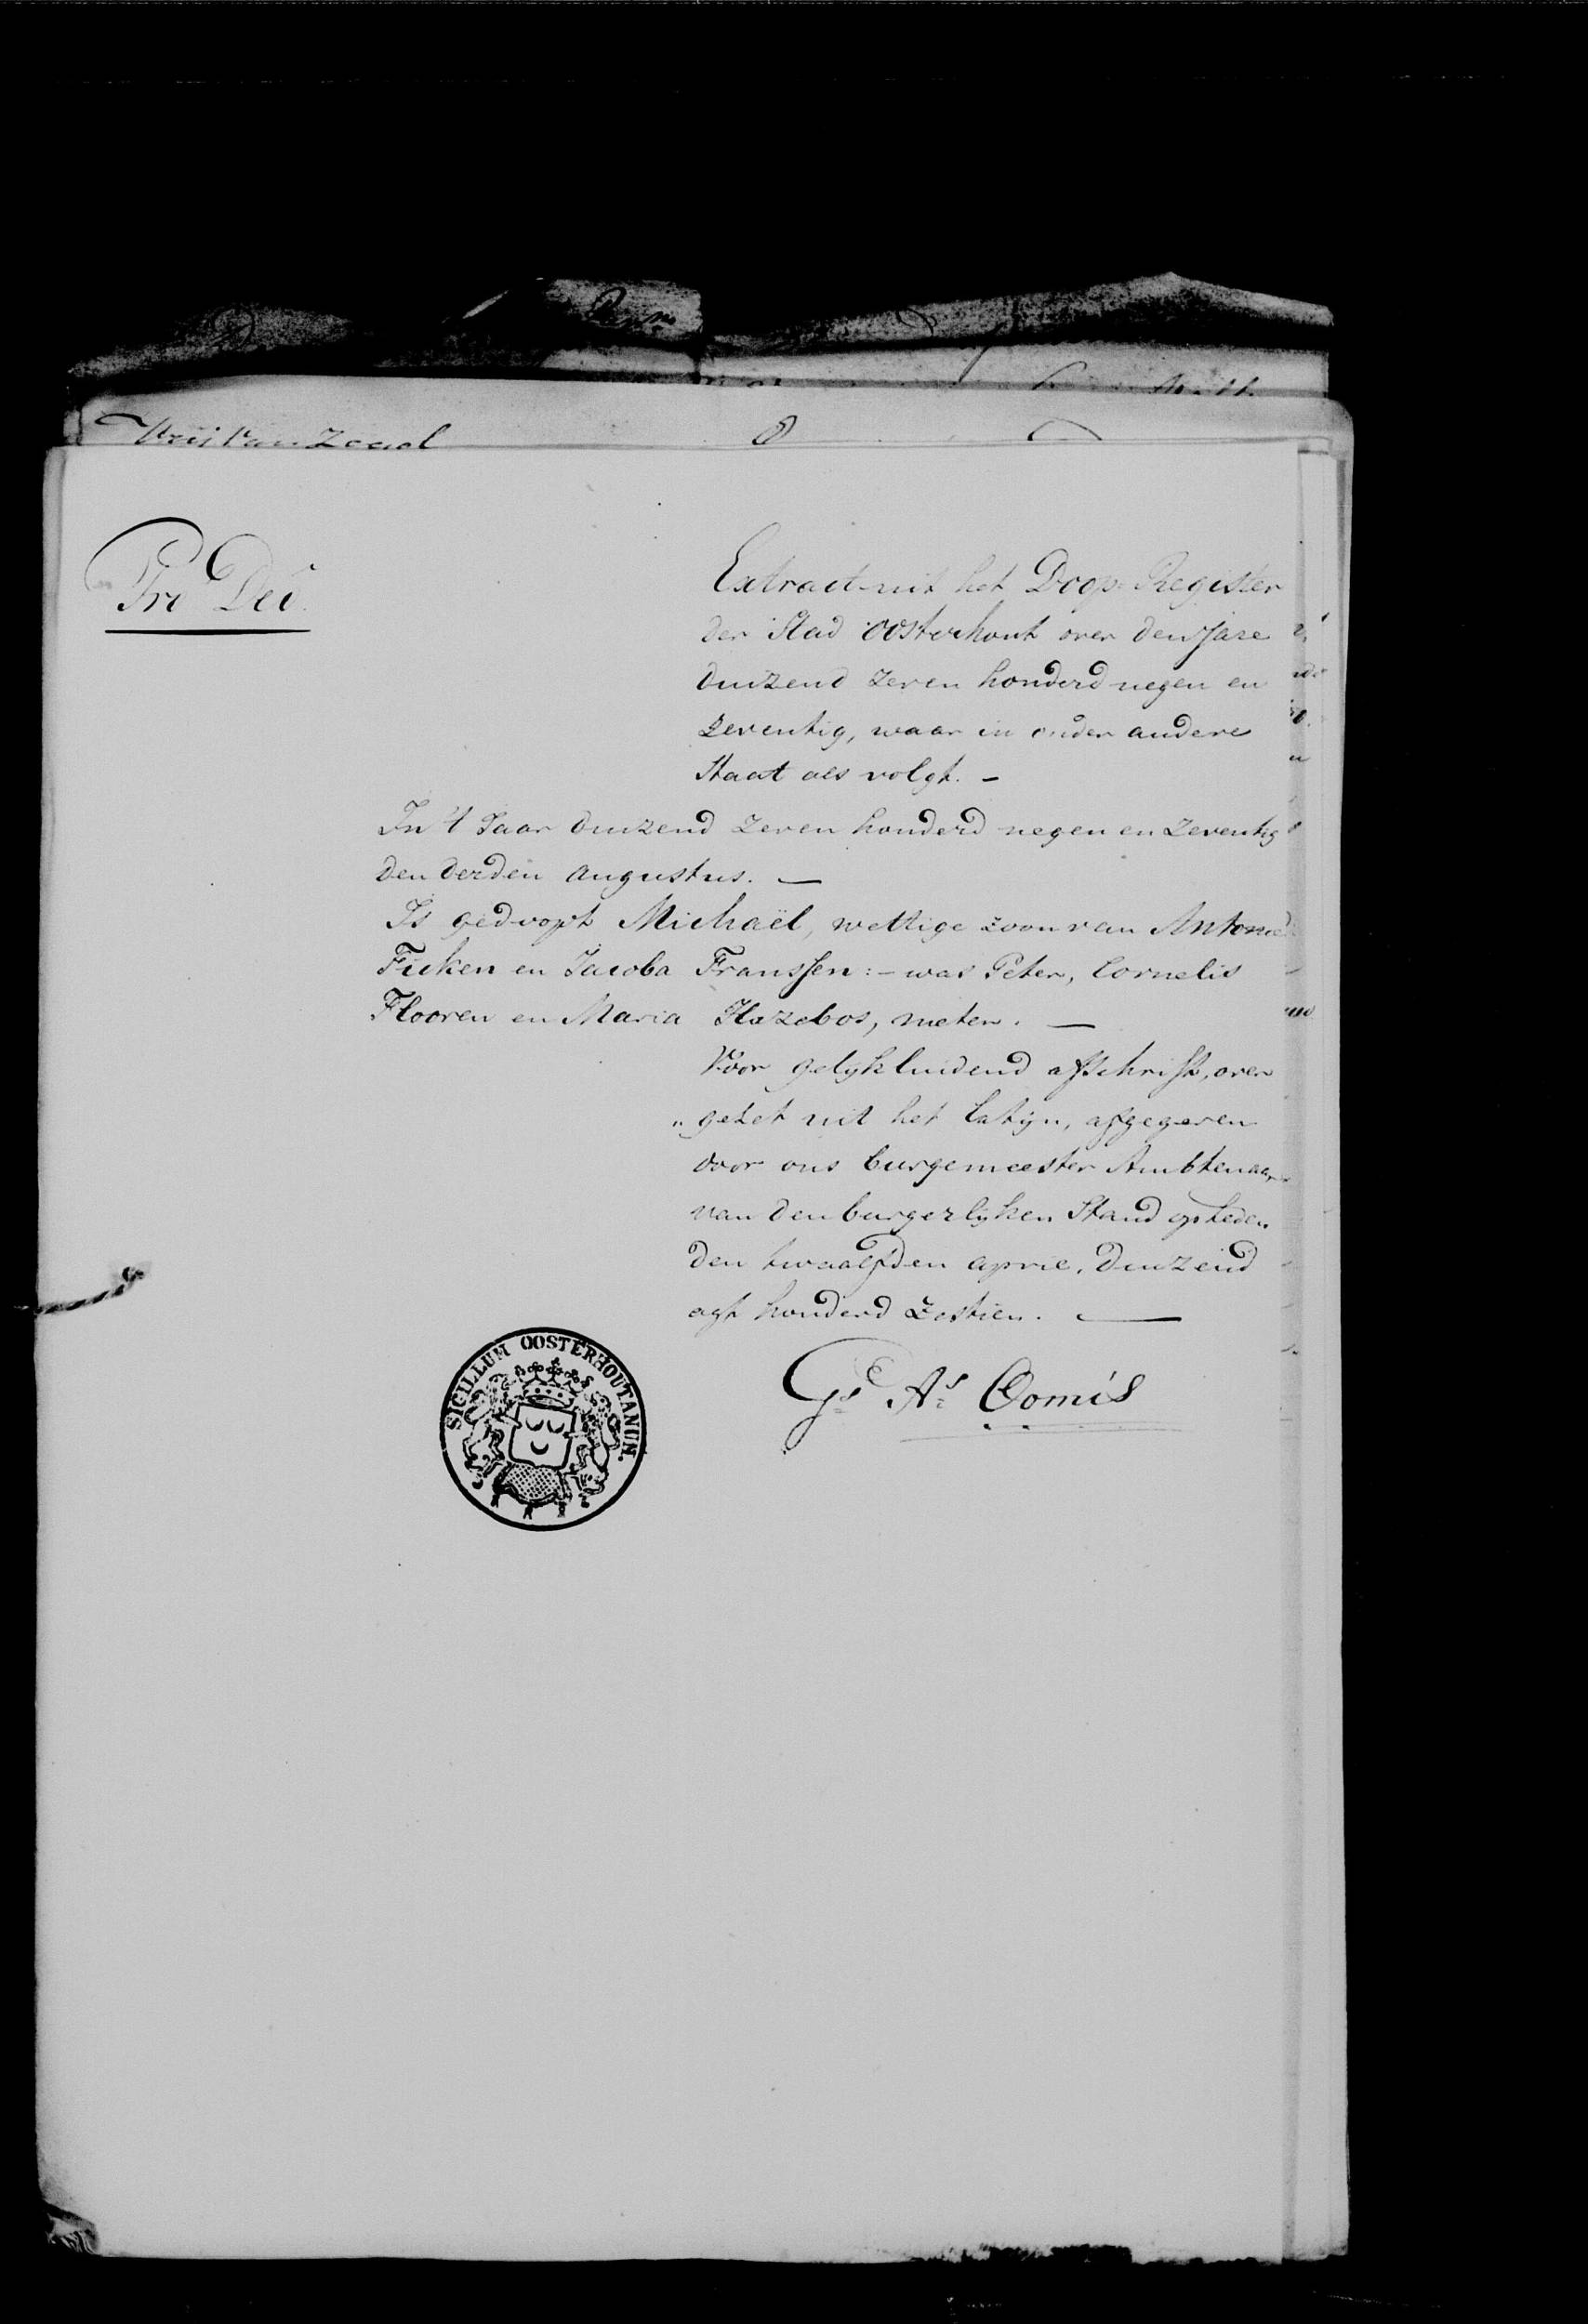 Vrij van Zegel
Pro Deo
Extract uit het Doop-Register
der Stad Oosterhout over den Jare
duizend zeven honderd negen en
zeventig, waar in onder andere
Staat als volgt. —
In 't Jaar duizend zeven honderd negen en zeventig
den derden augustus. —
Is gedoopt Michaël, wettige zoon van Antonie
Ficken en Jacoba Franssen: – was Peter, Cornelis
Flooren en Maria Hazebos, meter. —
Voor gelijkluidend afschrift, over
„gezet uit het Latijn, afgegeven
door ons burgemeester Ambtenaar
van den burgerlijken Stand op heden
den twaalfden april, duizend
agt honderd zestien. —
Gs As Oomis
SIGILLUM OOSTERHOUTANUM.